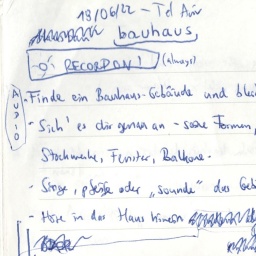 19/06/22 - Tel Aviv
bauhaus
RECORDON! (always)
AUDIO
- Finde ein Bauhaus-Gebäude und
- Sich' es dir genau an - seine Formen,
Stockwerke, Fenster, Balkone.
- Singe, pfeife oder "sounde" das
- Höre in das Haus hinein